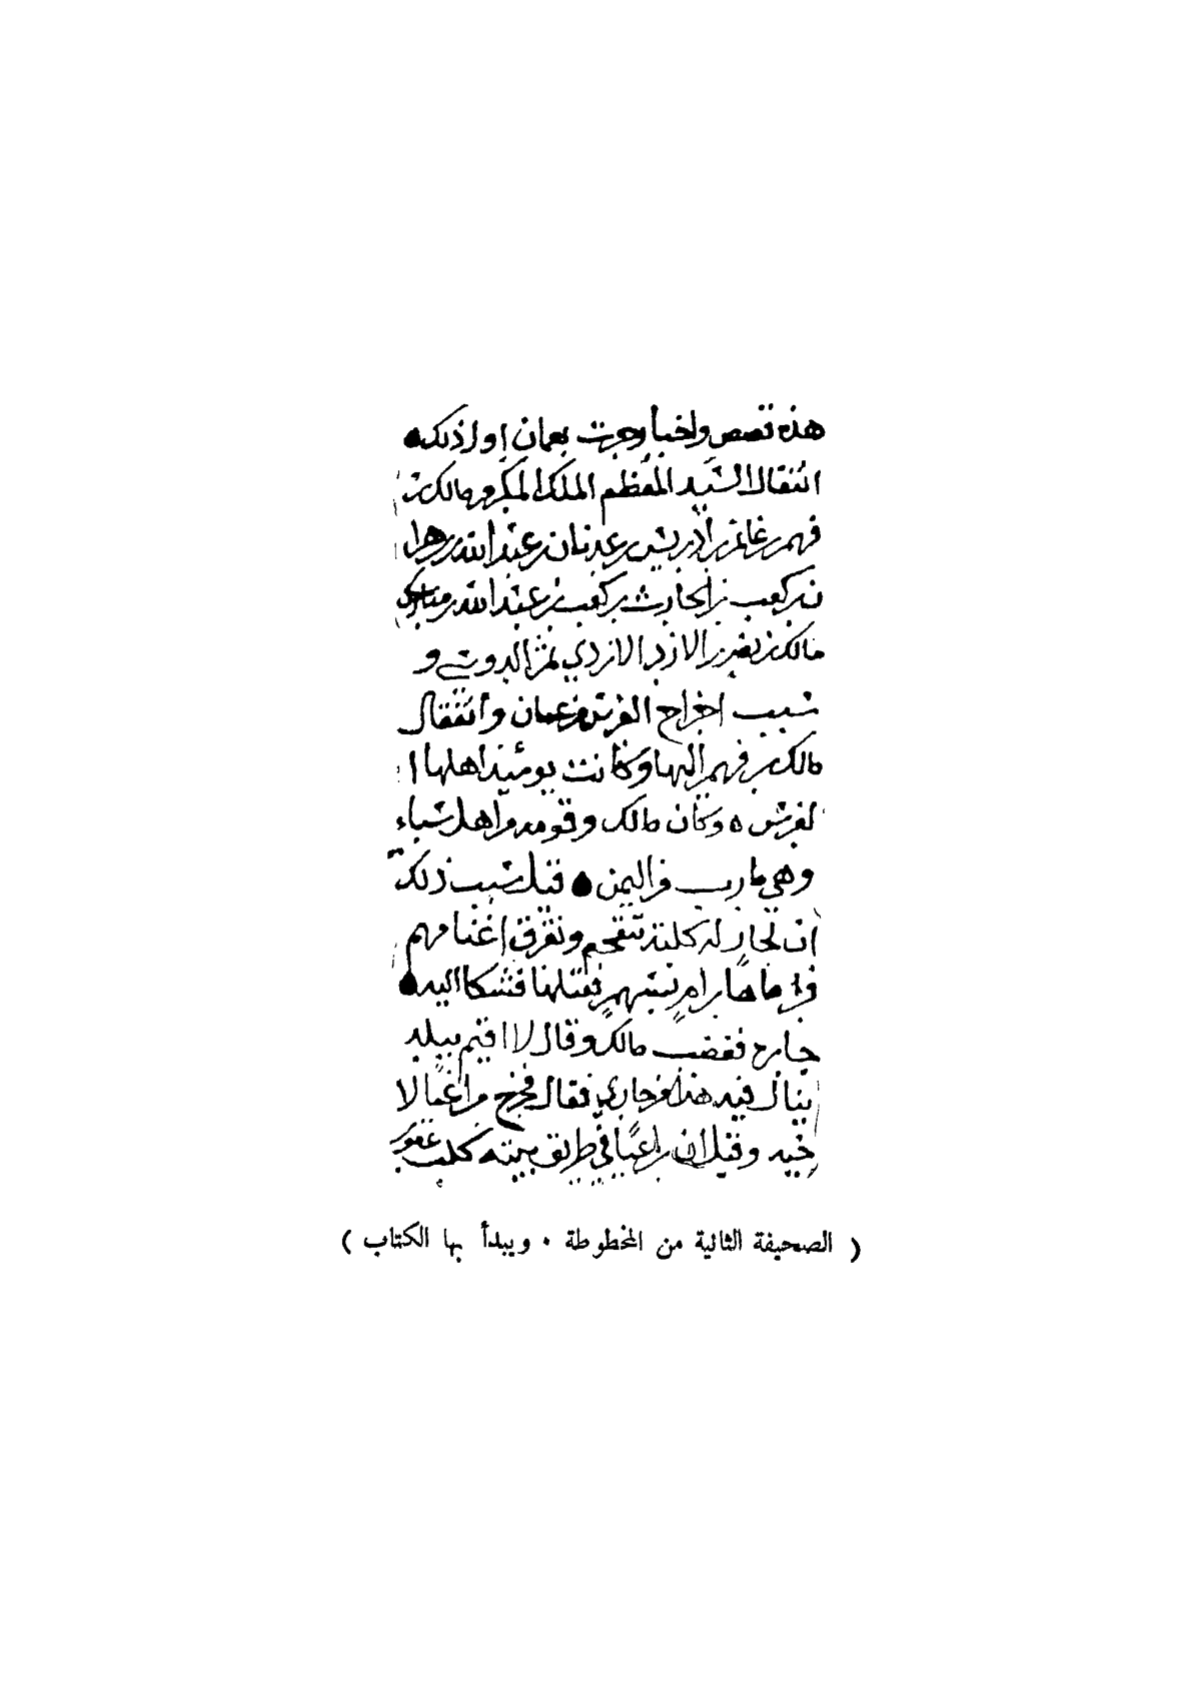 هذه قصص واخبار جرت بعمان اول ذلك
انتقال السيد المعظم الملك المكرم مالك بن
فهم بن غانم بن ادريس بن عدنان بن عبد الله بن زهرا
ن بن كعب بن الحارث بن كعب بن عبد الله بن
مالك بن نصر بن الازد الازدي ثم الدوسي و
سبب اخراج الفرس من عمان وانتقال
مالك بن فهم اليها وكانت يومئذ اهلها ا
لفرس ه وكان مالك وقومه من اهل سباء
وهي مارب من اليمن قيل سبب ذلك
ان لجار له كلبة تتقحم وتفرق اغنامهم
فرماها رام بسهم فقتلها فشكا اليه
جاره فغضب مالك وقال لا اقيم ببلد
ينال فيه هذا من جاري فقال فخرج مراغما لا
خيه وقيل ان راعيا في طريق بيته كلب عقور
( الصحيفة الثانية من المخطوطة ٠ ويبدأ بها الكتاب )